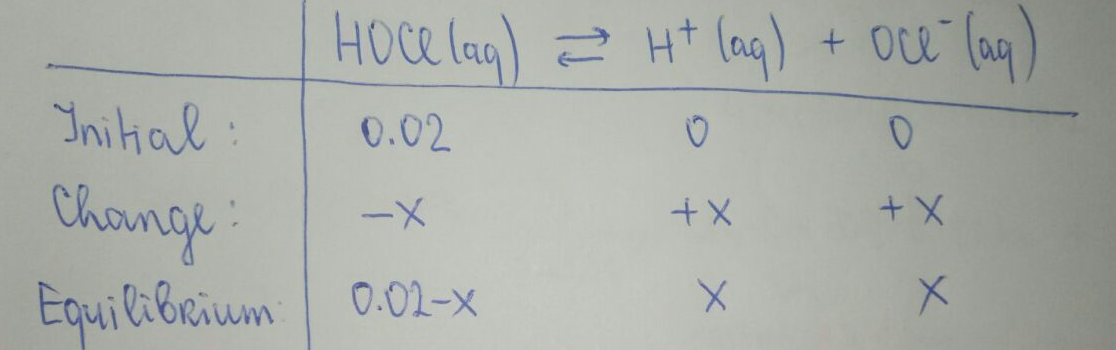 HOCl (aq) ⇄ H⁺ (aq) + OCl⁻ (aq)
Initial : 0.02 0 0
Change : -x +x +x
Equilibrium: 0.02-x x x